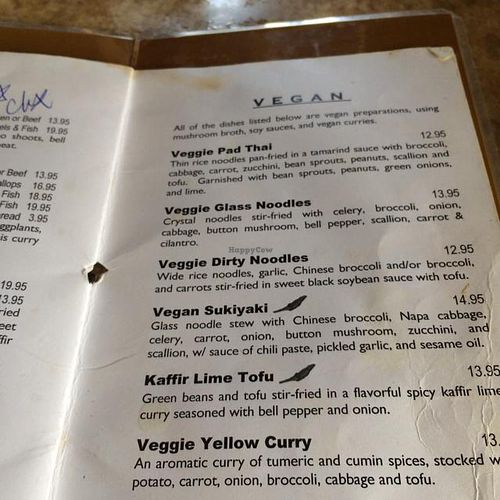 en or Beef 13.95
els & Fish 19.95
oo shoots, bell
eat.
or Beef 13.95
allops 16.95
Fish 18.95
Fish 19.95
read 3.95
ggplants,
is curry
19.95
13.95
ried
eet
ffir
VEGAN
All of the dishes listed below are vegan preparations, using
mushroom broth, soy sauces, and vegan curries.
Veggie Pad Thai 12.95
Thin rice noodles pan-fried in a tamarind sauce with broccoli,
cabbage, carrot, zucchini, bean sprouts, peanuts, scallion and
tofu. Garnished with bean sprouts, peanuts, green onions,
and lime.
Veggie Glass Noodles 13.95
Crystal noodles stir-fried with celery, broccoli, onion,
cabbage, button mushroom, bell pepper, scallion, carrot &
cilantro.
HappyCow
Veggie Dirty Noodles 12.95
Wide rice noodles, garlic, Chinese broccoli and/or broccoli,
and carrots stir-fried in sweet black soybean sauce with tofu.
Vegan Sukiyaki 14.95
Glass noodle stew with Chinese broccoli, Napa cabbage,
celery, carrot, onion, button mushroom, zucchini, and
scallion, w/ sauce of chili paste, pickled garlic, and sesame oil.
Kaffir Lime Tofu 13.95
Green beans and tofu stir-fried in a flavorful spicy kaffir lime
curry seasoned with bell pepper and onion.
Veggie Yellow Curry 13.
An aromatic curry of tumeric and cumin spices, stocked w
potato, carrot, onion, broccoli, cabbage and tofu.